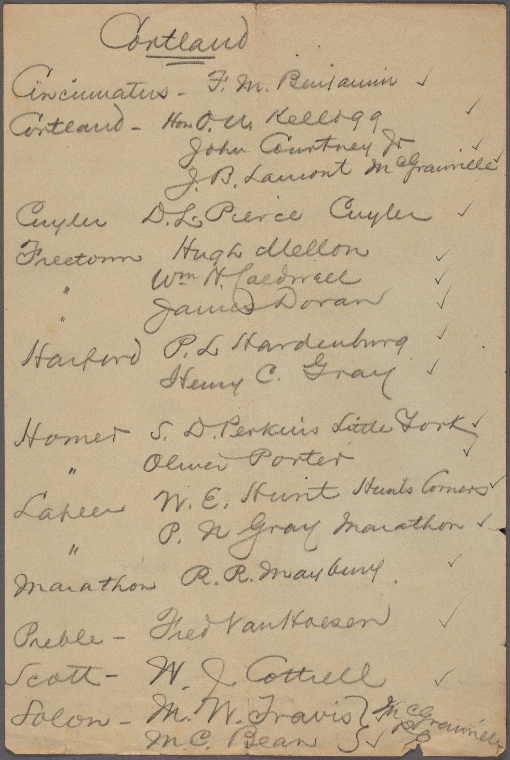 Cortland
Cincinnatus - F. M. Benjamin ✓
Cortland - Hon O. U. Kellogg ✓
John Courtney Jr ✓
J. B. Lamont McGrawville ✓
Cuyler D. L. Pierce Cuyler ✓
Freetown Hugh Mellon ✓
" Wm H. Caldwell ✓
" James Doran ✓
Harford P. L. Hardenburg ✓
Henry C. Gray ✓
Homer S. D. Perkins Little York ✓
" Oliver Porter ✓
Lapeer W. E. Hunt Hunts Corners ✓
" P. N Gray Marathon ✓
Marathon R. R. Maybury. ✓
Preble - Fred VanHoesen ✓
Scott - W. J. Cottrell ✓
Solon - M. W. Travis } McGrawville
M. C. Bean } ✓